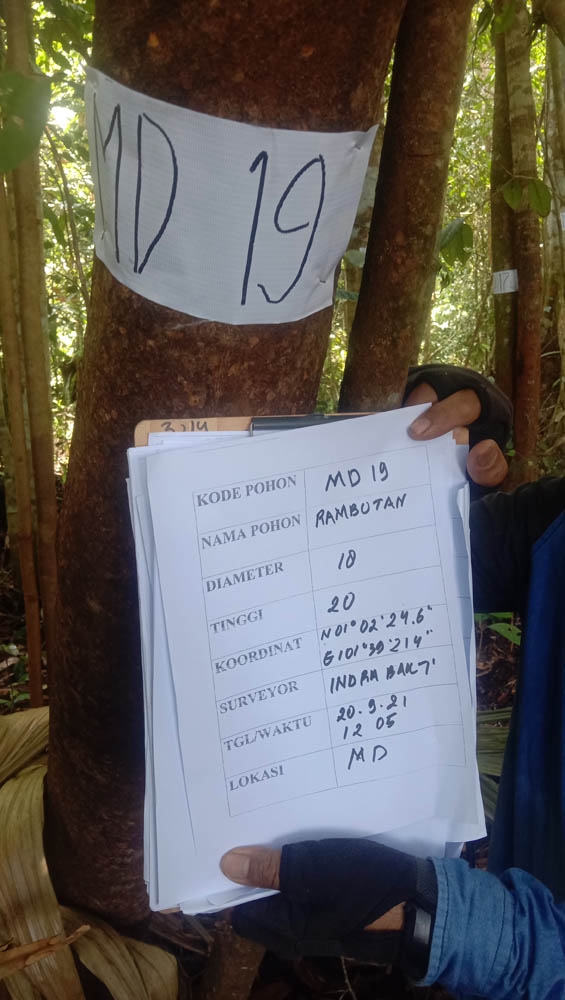 MD 19
17
KODE POHON MD 19
NAMA POHON RAMBUTAN
DIAMETER 18
TINGGI 20
KOORDINAT N 01° 02' 24.6"
E 101° 39' 21 4"
SURVEYOR INDRA BAKTI
TGL/WAKTU 20.9.21
12 05
LOKASI MD